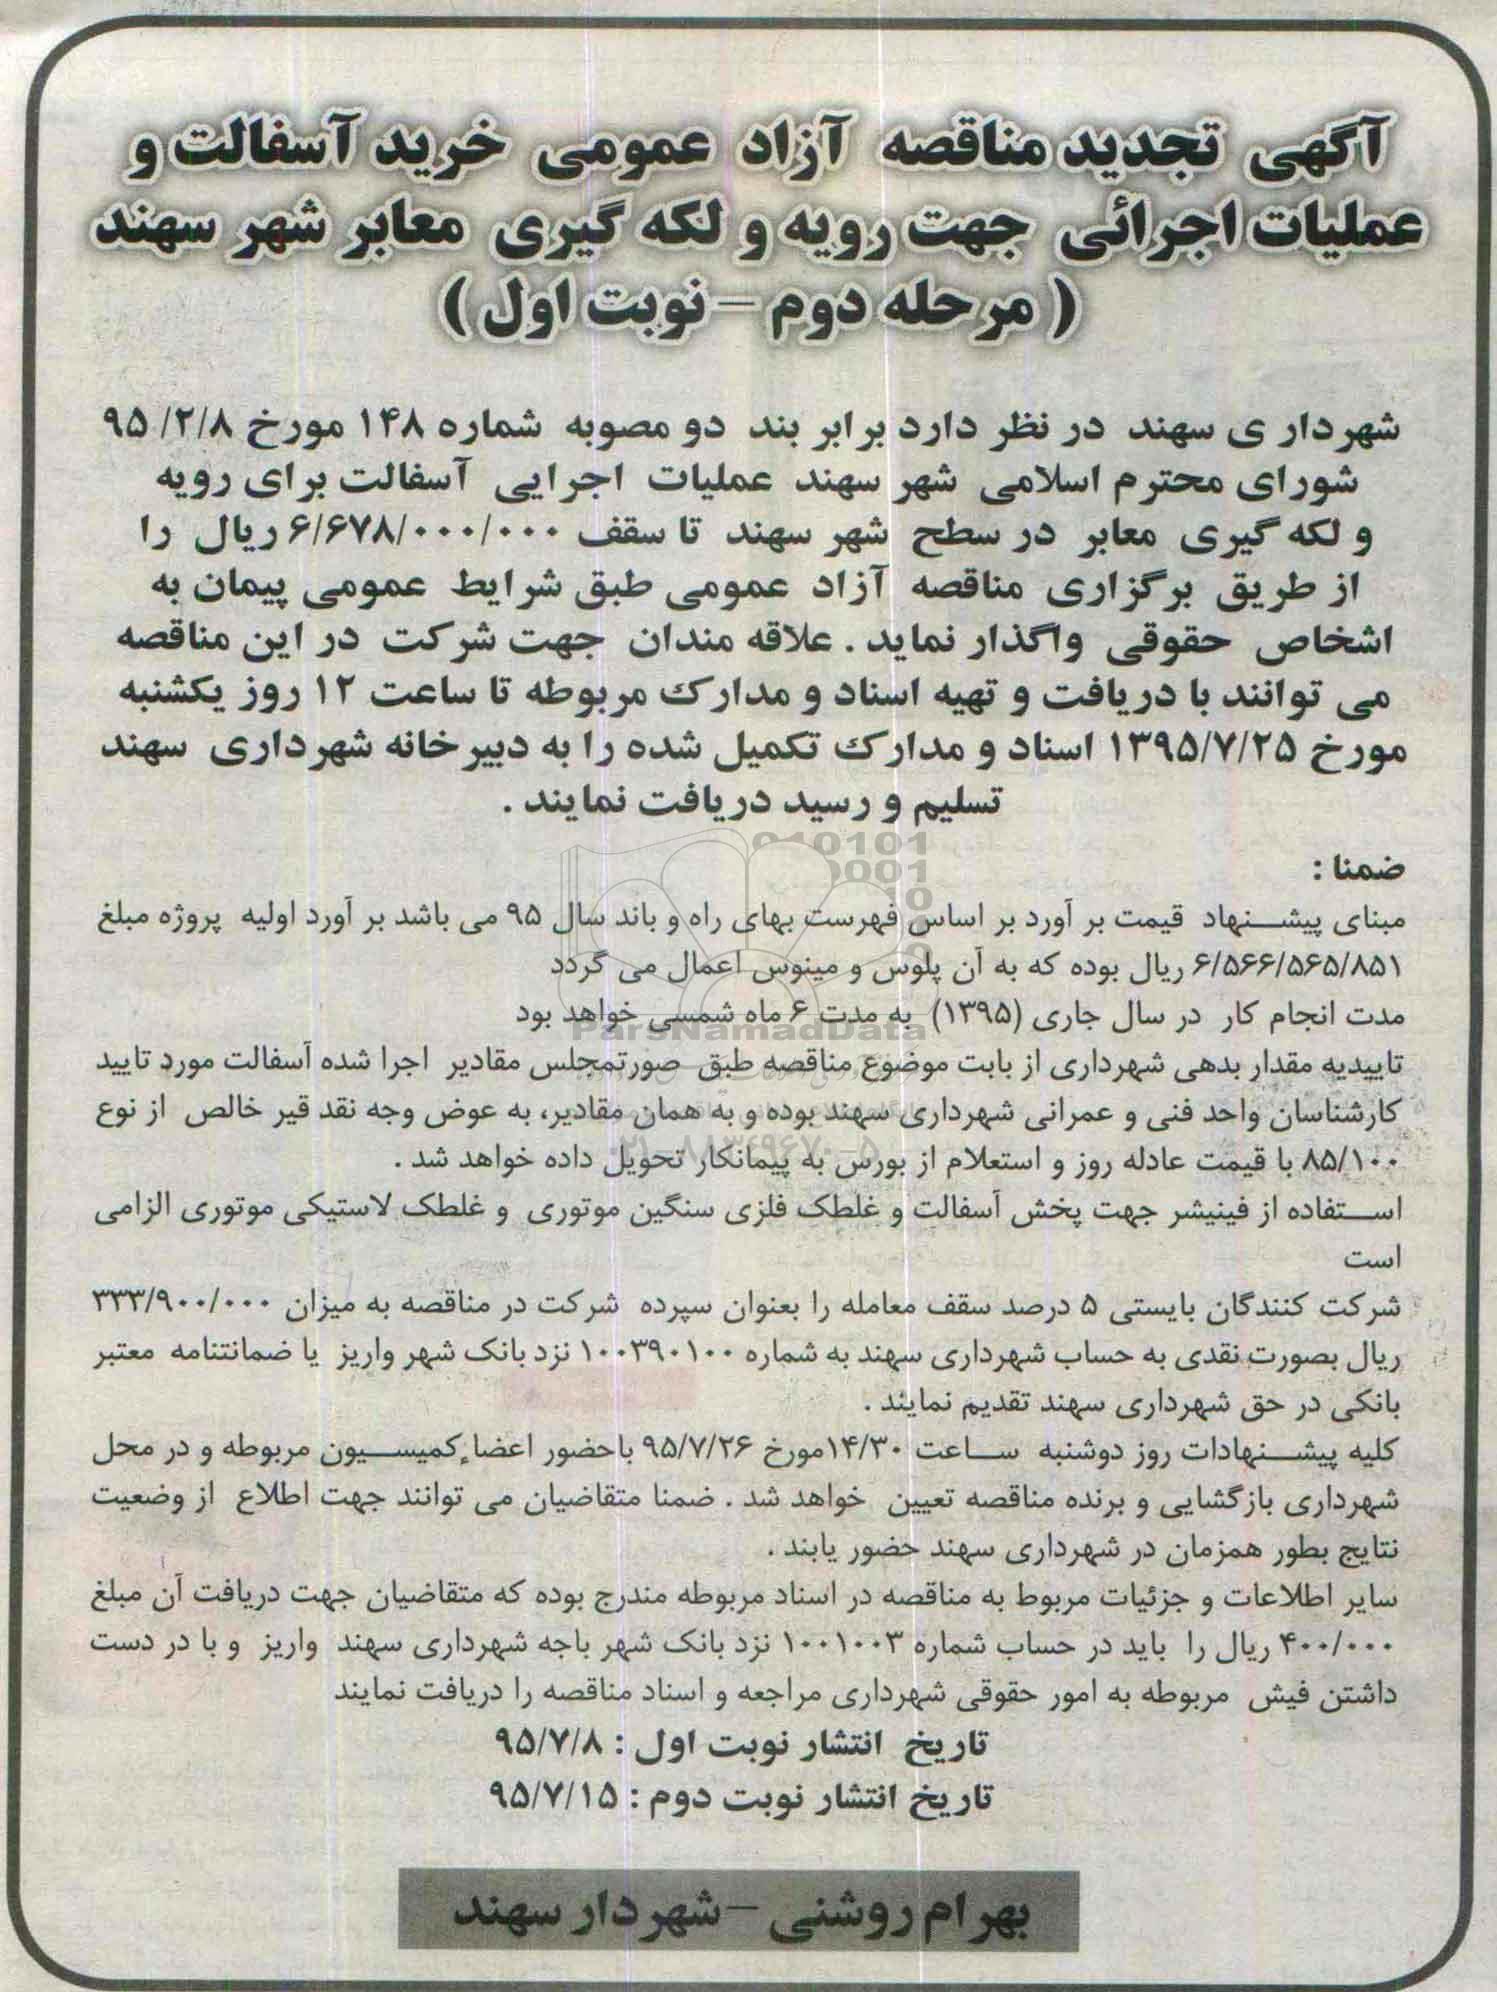 آگهی تجدید مناقصه آزاد عمومی خرید آسفالت و
عملیات اجرائی جهت رویه و لکه گیری معابر شهر سهند
( مرحله دوم – نوبت اول )
شهردار ی سهند در نظر دارد برابر بند دو مصوبه شماره ۱۴۸ مورخ ۹۵/۲/۸
شورای محترم اسلامی شهر سهند عملیات اجرایی آسفالت برای رویه
و لکه گیری معابر در سطح شهر سهند تا سقف ۶/۶۷۸/۰۰۰/۰۰۰ ریال را
از طریق برگزاری مناقصه آزاد عمومی طبق شرایط عمومی پیمان به
اشخاص حقوقی واگذار نماید . علاقه مندان جهت شرکت در این مناقصه
می توانند با دریافت و تهیه اسناد و مدارک مربوطه تا ساعت ۱۲ روز یکشنبه
مورخ ۱۳۹۵/۷/۲۵ اسناد و مدارک تکمیل شده را به دبیرخانه شهرداری سهند
تسلیم و رسید دریافت نمایند .
ضمنا :
مبنای پیشنهاد قیمت بر آورد بر اساس فهرست بهای راه و باند سال ۹۵ می باشد بر آورد اولیه پروژه مبلغ
۶/۵۶۶/۵۶۵/۸۵۱ ریال بوده که به آن پلوس و مینوس اعمال می گردد
مدت انجام کار در سال جاری (۱۳۹۵) به مدت ۶ ماه شمسی خواهد بود
ParsNamadData
تاییدیه مقدار بدهی شهرداری از بابت موضوع مناقصه طبق صورتمجلس مقادیر اجرا شده آسفالت مورد تایید
کارشناسان واحد فنی و عمرانی شهرداری سهند بوده و به همان مقادیر، به عوض وجه نقد قیر خالص از نوع
۸۵/۱۰۰ با قیمت عادله روز و استعلام از بورس به پیمانکار تحویل داده خواهد شد .
۰۲۱-۸۸۳۴۹۶۷۰-۵
استفاده از فینیشر جهت پخش آسفالت و غلطک فلزی سنگین موتوری و غلطک لاستیکی موتوری الزامی
است
شرکت کنندگان بایستی ۵ درصد سقف معامله را بعنوان سپرده شرکت در مناقصه به میزان ۳۳۳/۹۰۰/۰۰۰
ریال بصورت نقدی به حساب شهرداری سهند به شماره ۱۰۰۳۹۰۱۰۰ نزد بانک شهر واریز یا ضمانتنامه معتبر
بانکی در حق شهرداری سهند تقدیم نمایند .
کلیه پیشنهادات روز دوشنبه ساعت ۱۴/۳۰مورخ ۹۵/۷/۲۶ باحضور اعضاء کمیسیون مربوطه و در محل
شهرداری بازگشایی و برنده مناقصه تعیین خواهد شد . ضمنا متقاضیان می توانند جهت اطلاع از وضعیت
نتایج بطور همزمان در شهرداری سهند حضور یابند .
سایر اطلاعات و جزئیات مربوط به مناقصه در اسناد مربوطه مندرج بوده که متقاضیان جهت دریافت آن مبلغ
۴۰۰/۰۰۰ ریال را باید در حساب شماره ۱۰۰۱۰۰۳ نزد بانک شهر باجه شهرداری سهند واریز و با در دست
داشتن فیش مربوطه به امور حقوقی شهرداری مراجعه و اسناد مناقصه را دریافت نمایند
تاریخ انتشار نوبت اول : ۹۵/۷/۸
تاریخ انتشار نوبت دوم : ۹۵/۷/۱۵
بهرام روشنی –شهردار سهند